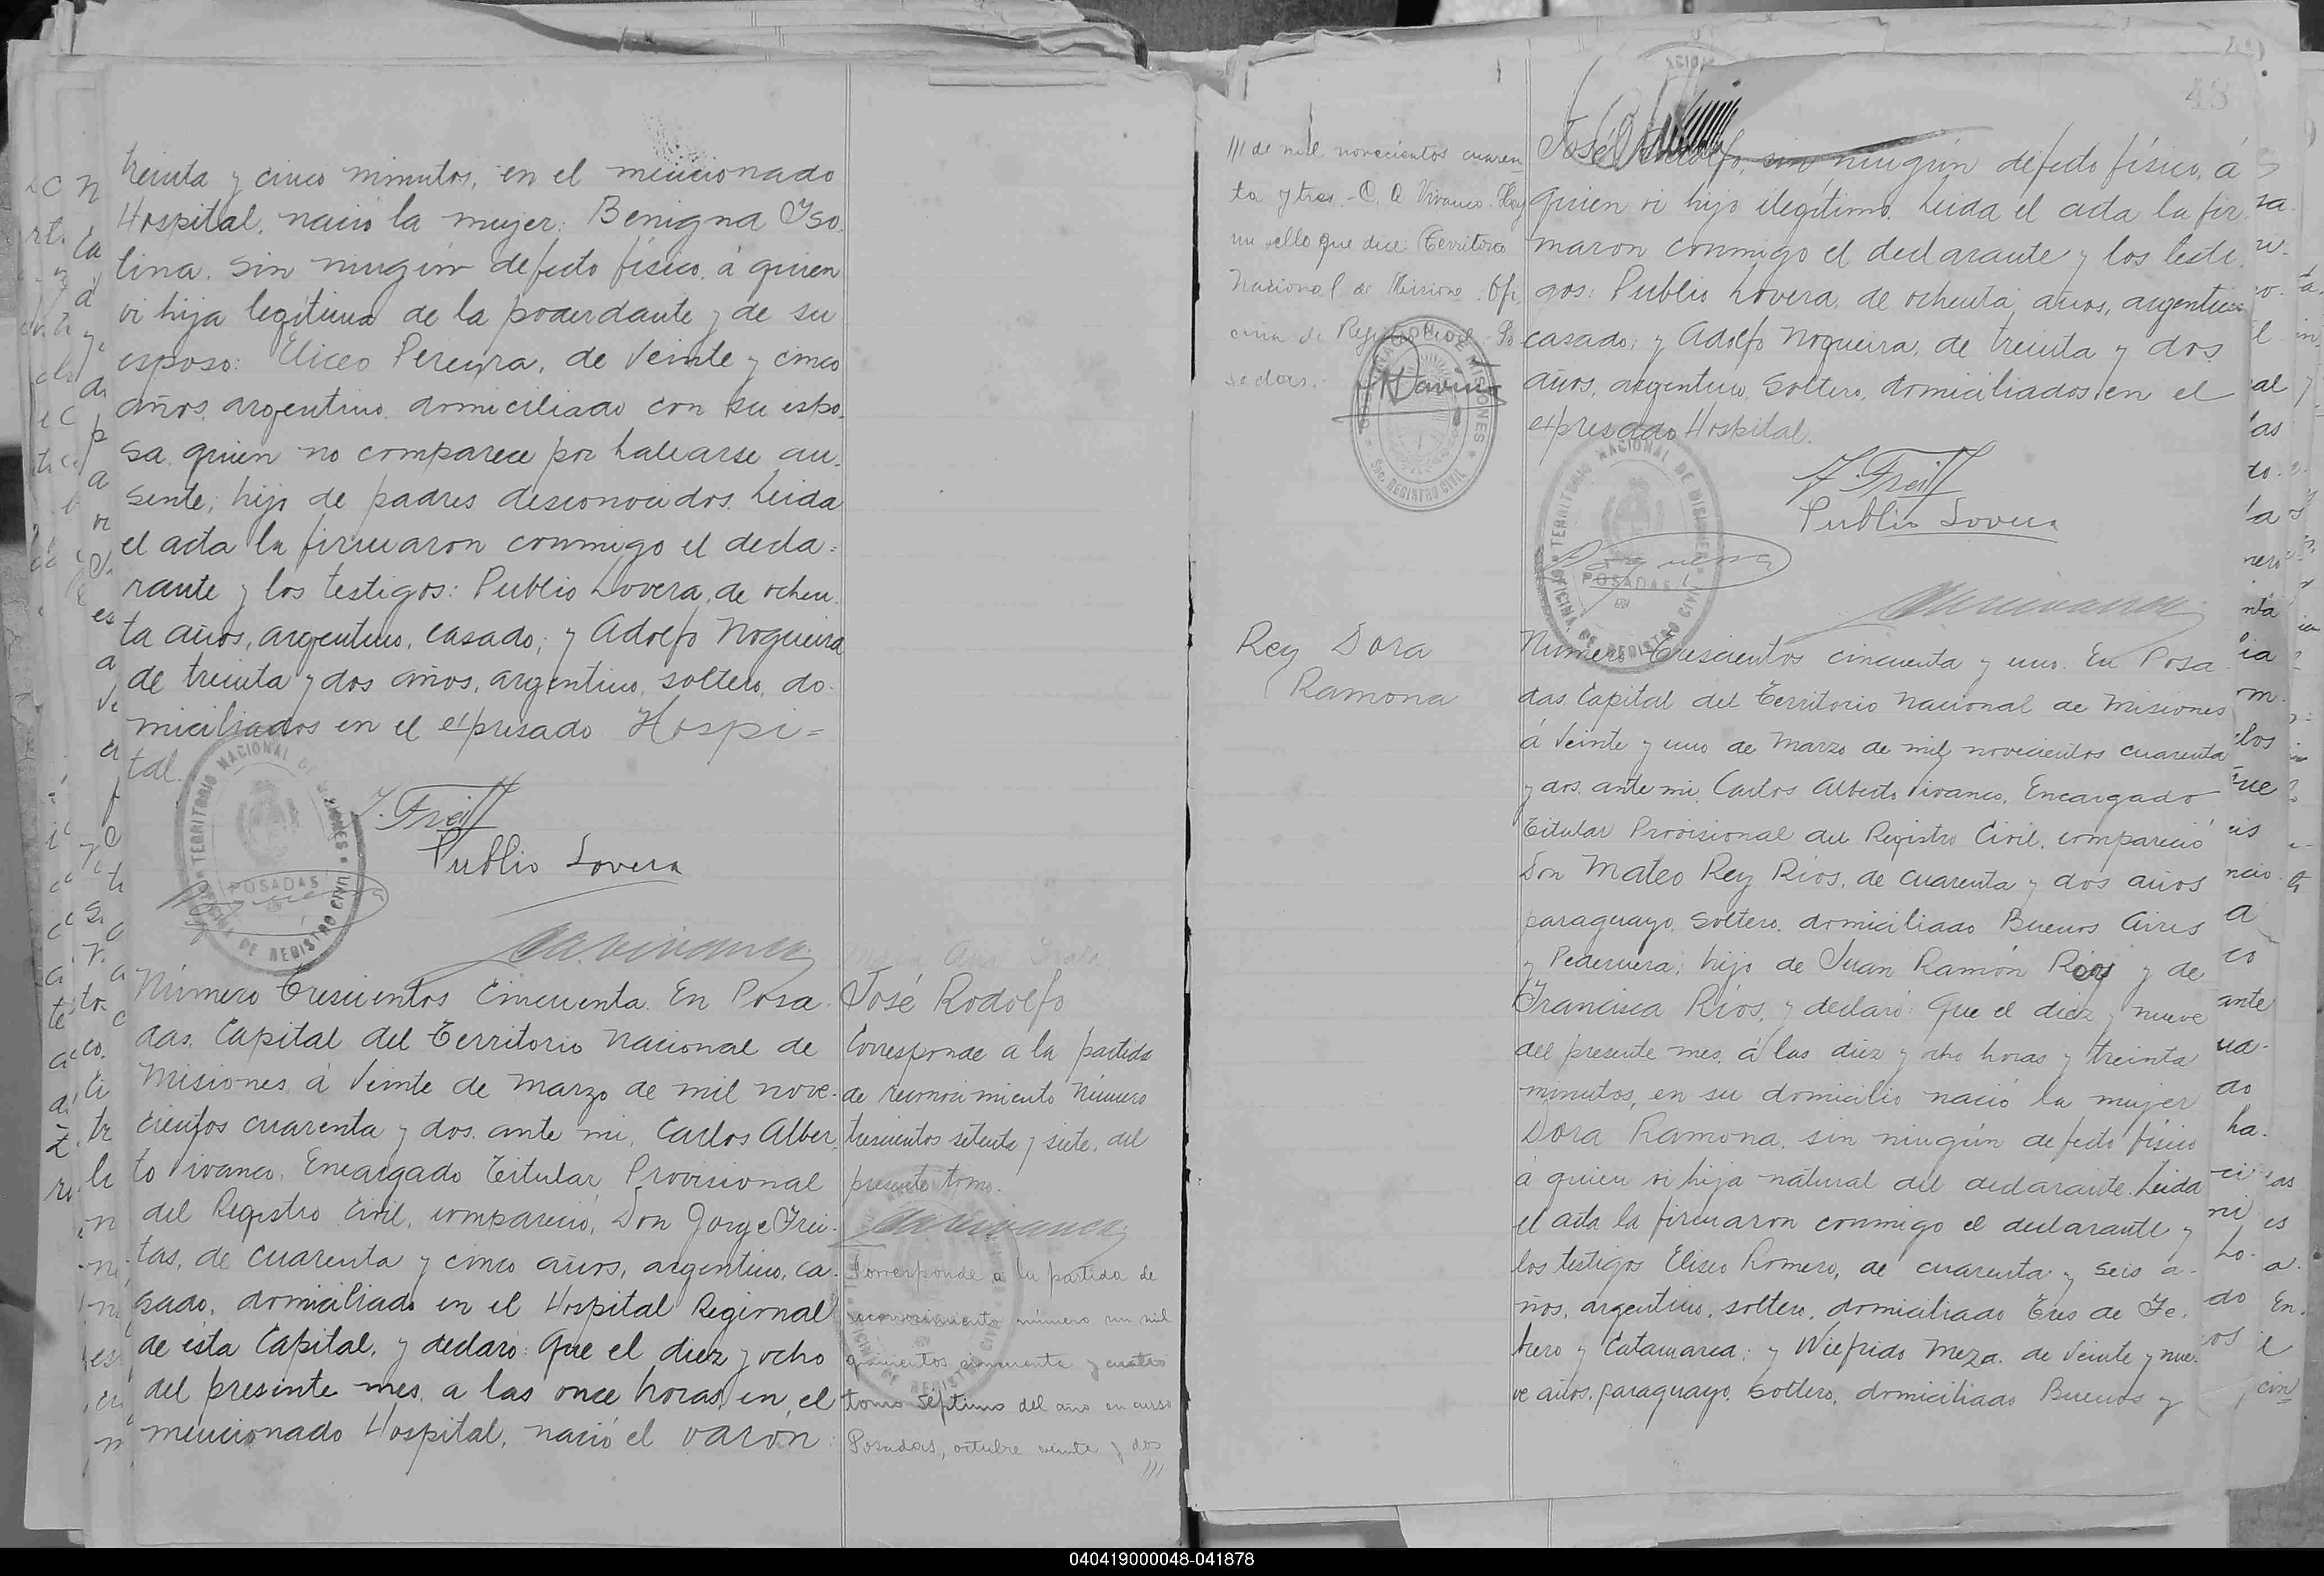 treinta y cinco minutos, en el mencionado
Hospital, nació la mujer: Benigna Iso-
lina, sin ningún defecto físico, á quien
vi hija legítima de la poderdante y de su
esposo: Eliceo Pereyra, de veinte y cinco
años, argentino, domiciliado con su espo-
sa, quien no comparece por hallarse au-
sente; hijo de padres desconocidos. Leida
el acta la firmaron conmigo el decla-
rante y los testigos: Publio Lovera, de ochen-
ta años, argentino, casado; y Adolfo Nogueira
de treinta y dos años, argentino, soltero, do-
miciliados en el expresado Hospi=
tal.
TERRITORIO NACIONAL DE MISIONES
POSADAS
OFICINA DE REGISTRO CIVIL
Publio Lovera
Número Trescientos cincuenta. En Posa-
das, Capital del Territorio Nacional de
Misiones, á veinte de Marzo de mil nove-
cientos cuarenta y dos, ante mi, Carlos Alber-
to Vivanco, Encargado Titular Provisional
del Registro Civil, compareció, Don Jorge Frei-
tas, de cuarenta y cinco años, argentino, ca-
sado, domiciliado en el Hospital Regional
de ésta Capital, y declaró: Que el diez y ocho
del presente mes, a las once horas, en el
mencionado Hospital, nació el varón:
José Rodolfo
Corresponde a la partida
de reconocimiento Número
trescientos setenta y siete, del
presente tomo.
Corresponde a la partida de
reconocimiento número un mil
quinientos cincuenta y cuatro
tomo séptimo del año en curso
Posadas, octubre veinte y dos
///
/// de mil novecientos cuaren-
ta y tres.- C. A. Vivanco. Hay
un sello que dice: Territorio
Nacional de Misiones. Ofi-
cina de Registro Civil. Po
sadas.
MISIONES
REGISTRO CIVIL
48
José Rodolfo, sin ningún defecto físico, á
quien vi hijo ilegítimo. Leida el acta la fir-
maron conmigo el declarante y los testi-
gos: Publio Lovera, de ochenta años, argentino
casado; y Adolfo Nogueira, de treinta y dos
años, argentino, soltero, domiciliados en el
expresado Hospital.
Publio Lovera
TERRITORIO NACIONAL DE MISIONES
POSADAS
OFICINA DE REGISTRO CIVIL
Rey Dora
Ramona
Número Trescientos cincuenta y uno. En Posa-
das, Capital del Territorio Nacional de Misiones
á veinte y uno de Marzo de mil novecientos cuarenta
y dos, ante mi, Carlos Alberto Vivanco, Encargado
Titular Provisional del Registro Civil, compareció
Don Mateo Rey Rios, de cuarenta y dos años
paraguayo, soltero, domiciliado Buenos Aires
y Pedernera; hijo de Juan Ramón Rey y de
Francisca Rios, y declaró: Que el diez y nueve
del presente mes, á las diez y ocho horas y treinta
minutos, en su domicilio nació la mujer
Dora Ramona, sin ningún defecto físico
á quien vi hija natural del declarante. Leida
el acta la firmaron conmigo el declarante y
los testigos Eliseo Romero, de cuarenta y seis a-
ños, argentino, soltero, domiciliado Tres de Fe-
brero y Catamarca; y Wilfrido Meza, de veinte y nue-
ve años, paraguayo, soltero, domiciliado Buenos y
040419000048-041878